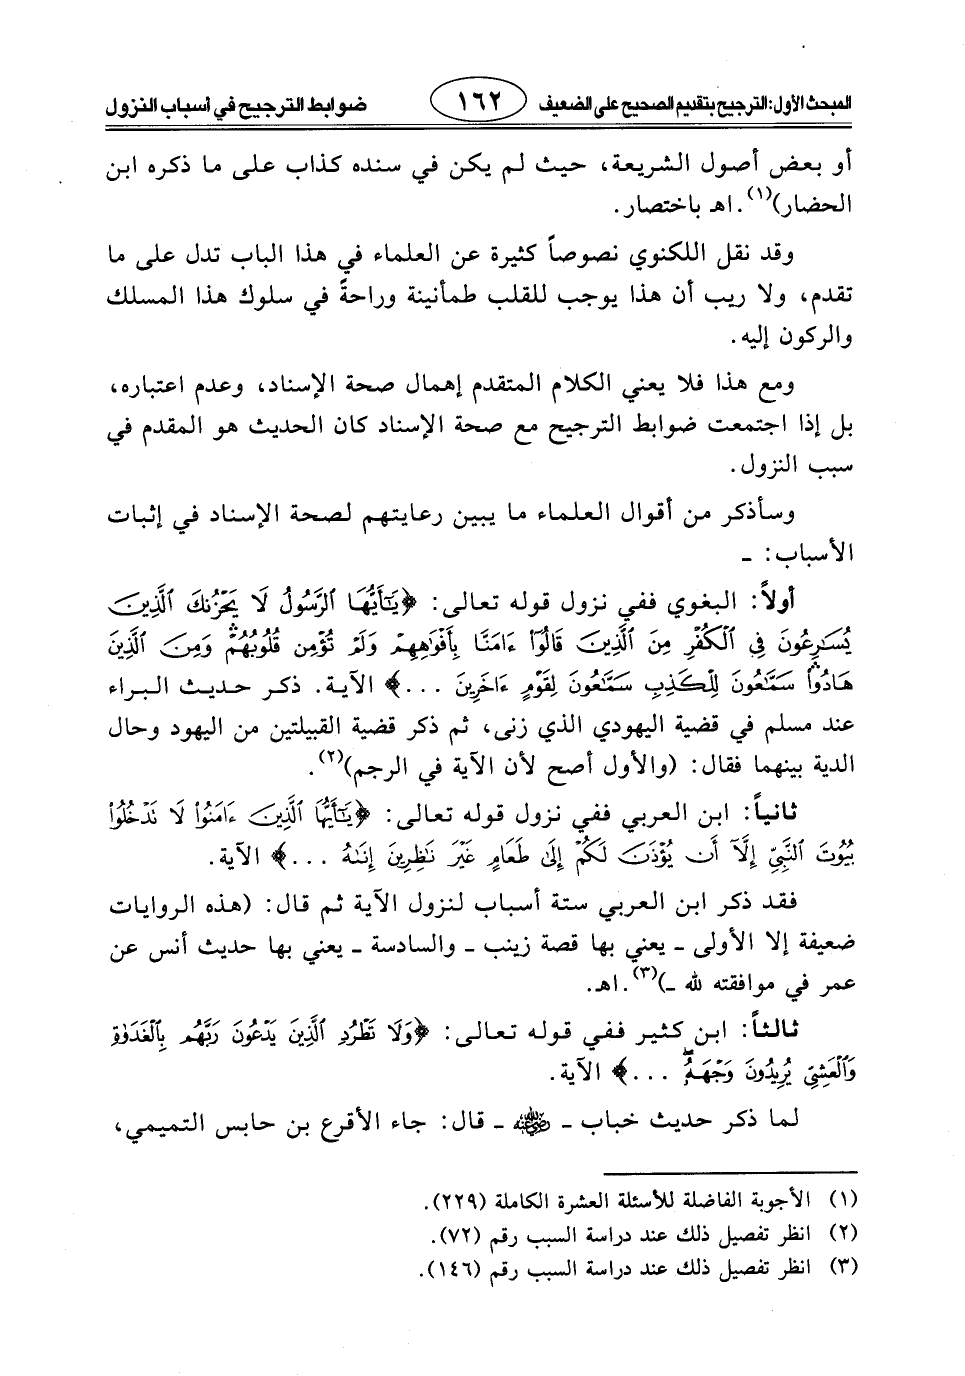 المبحث الأول: الترجيح بتقديم الصحيح على الضعيف ١٦٢ ضوابط الترجيح في أسباب النزول
أو بعض أصول الشريعة، حيث لم يكن في سنده كذاب على ما ذكره ابن
الحضار)(١). اهـ باختصار.
وقد نقل اللكنوي نصوصاً كثيرة عن العلماء في هذا الباب تدل على ما
تقدم، ولا ريب أن هذا يوجب للقلب طمأنينة وراحةً في سلوك هذا المسلك
والركون إليه.
ومع هذا فلا يعني الكلام المتقدم إهمال صحة الإسناد، وعدم اعتباره،
بل إذا اجتمعت ضوابط الترجيح مع صحة الإسناد كان الحديث هو المقدم في
سبب النزول.
وسأذكر من أقوال العلماء ما يبين رعايتهم لصحة الإسناد في إثبات
الأسباب: ـ
أولاً: البغوي ففي نزول قوله تعالى: ﴿يَٰٓأَيُّهَا ٱلرَّسُولُ لَا يَحْزُنكَ ٱلَّذِينَ
يُسَٰرِعُونَ فِى ٱلْكُفْرِ مِنَ ٱلَّذِينَ قَالُوٓا۟ ءَامَنَّا بِأَفْوَٰهِهِمْ وَلَمْ تُؤْمِن قُلُوبُهُمْ ۛ وَمِنَ ٱلَّذِينَ
هَادُوا۟ ۛ سَمَّٰعُونَ لِلْكَذِبِ سَمَّٰعُونَ لِقَوْمٍ ءَاخَرِينَ ...﴾ الآية. ذكر حديث البراء
عند مسلم في قضية اليهودي الذي زنى، ثم ذكر قضية القبيلتين من اليهود وحال
الدية بينهما فقال: (والأول أصح لأن الآية في الرجم)(٢).
ثانياً: ابن العربي ففي نزول قوله تعالى: ﴿يَٰٓأَيُّهَا ٱلَّذِينَ ءَامَنُوا۟ لَا تَدْخُلُوا۟
بُيُوتَ ٱلنَّبِىِّ إِلَّآ أَن يُؤْذَنَ لَكُمْ إِلَىٰ طَعَامٍ غَيْرَ نَٰظِرِينَ إِنَىٰهُ ...﴾ الآية.
فقد ذكر ابن العربي ستة أسباب لنزول الآية ثم قال: (هذه الروايات
ضعيفة إلا الأولى ـ يعني بها قصة زينب ـ والسادسة ـ يعني بها حديث أنس عن
عمر في موافقته لله ـ)(٣). اهـ.
ثالثاً: ابن كثير ففي قوله تعالى: ﴿وَلَا تَطْرُدِ ٱلَّذِينَ يَدْعُونَ رَبَّهُم بِٱلْغَدَوٰةِ
وَٱلْعَشِىِّ يُرِيدُونَ وَجْهَهُۥ ۖ ...﴾ الآية.
لما ذكر حديث خباب ـ رضي الله عنه ـ قال: جاء الأقرع بن حابس التميمي،
(١) الأجوبة الفاضلة للأسئلة العشرة الكاملة (٢٢٩).
(٢) انظر تفصيل ذلك عند دراسة السبب رقم (٧٢).
(٣) انظر تفصيل ذلك عند دراسة السبب رقم (١٤٦).